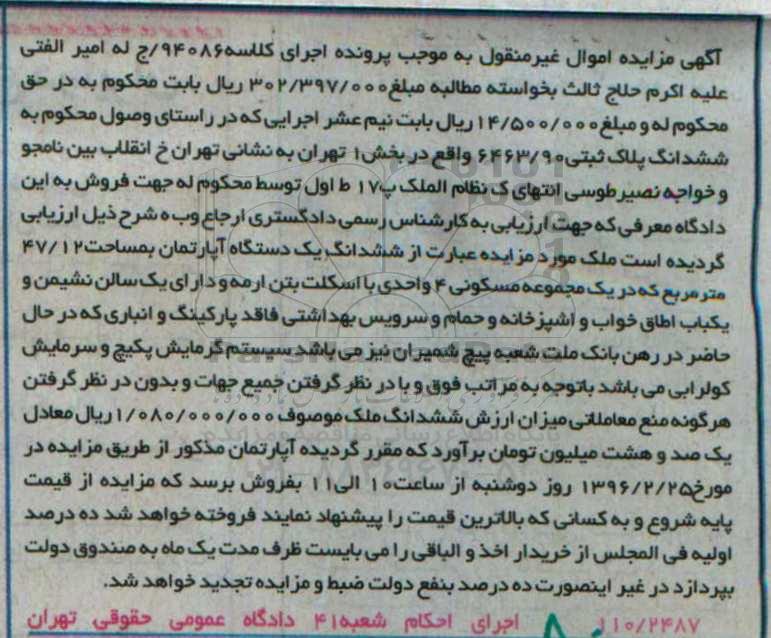 آگهی مزایده اموال غیرمنقول به موجب پرونده اجرای کلاسه۹۴۰۸۶/ج له امیر الفتی
علیه اکرم حلاج ثالث بخواسته مطالبه مبلغ۳۰۲/۳۹۷/۰۰۰ ریال بابت محکوم به در حق
محکوم له و مبلغ۱۴/۵۰۰/۰۰۰ریال بابت نیم عشر اجرایی که در راستای وصول محکوم به
ششدانگ پلاک ثبتی۶۴۶۳/۹۰ واقع در بخش۱ تهران به نشانی تهران خ انقلاب بین نامجو
و خواجه نصیر طوسی انتهای ک نظام الملک پ۱۷ ط اول توسط محکوم له جهت فروش به این
دادگاه معرفی که جهت ارزیابی به کارشناس رسمی دادگستری ارجاع وب ه شرح ذیل ارزیابی
گردیده است ملک مورد مزایده عبارت از ششدانگ یک دستگاه آپارتمان بمساحت۴۷/۱۲
متر مربع که در یک مجموعه مسکونی ۴ واحدی با اسکلت بتن ارمه و دارای یک سالن نشیمن و
یکباب اطاق خواب و آشپزخانه و حمام و سرویس بهداشتی فاقد پارکینگ و انباری که در حال
حاضر در رهن بانک ملت شعبه پیچ شمیران نیز می باشد سیستم گرمایش پکیج و سرمایش
کولر ابی می باشد باتوجه به مراتب فوق و با در نظر گرفتن جمیع جهات و بدون در نظر گرفتن
هرگونه منع معاملاتی میزان ارزش ششدانگ ملک موصوف ۱/۰۸۰/۰۰۰/۰۰۰ریال معادل
یک صد و هشت میلیون تومان برآورد که مقرر گردیده آپارتمان مذکور از طریق مزایده در
مورخ۱۳۹۶/۲/۲۵ روز دوشنبه از ساعت۱۰ الی۱۱ بفروش برسد که مزایده از قیمت
پایه شروع و به کسانی که بالاترین قیمت را پیشنهاد نمایند فروخته خواهد شد ده درصد
اولیه فی المجلس از خریدار اخذ و الباقی را می بایست ظرف مدت یک ماه به صندوق دولت
بپردازد در غیر اینصورت ده درصد بنفع دولت ضبط و مزایده تجدید خواهد شد.
۱۱۰/۲۴۸۷ اجرای احکام شعبه۴۱ دادگاه عمومی حقوقی تهران